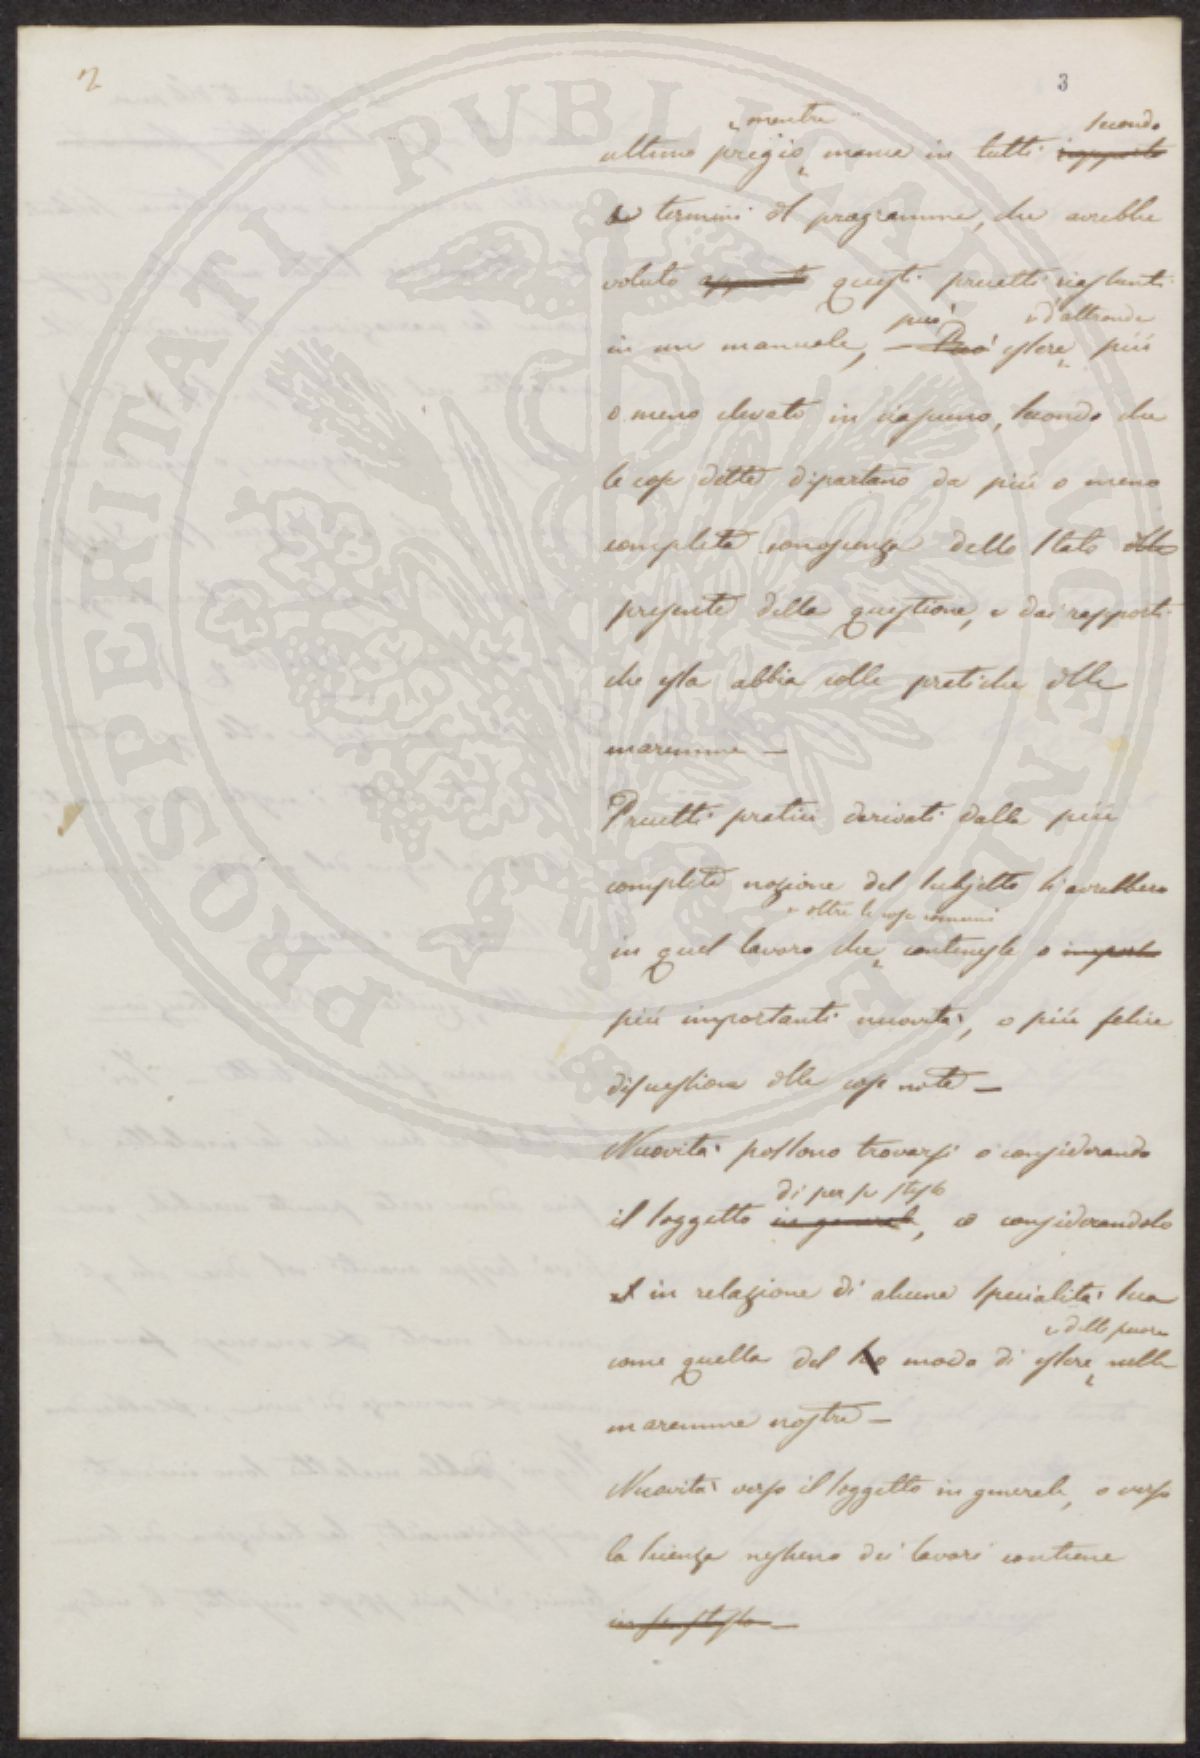 2
3
e mentre secondo
ultimo pregio, manca in tutti rapporto
a termini del programma, che avrebbe
voluto appunto questi precetti riestanti
può e d'altronde
in un manuale, – Può essere, più
o meno elevato in ciascuno, secondo che
le cose dette dipartano da più o meno
completa conoscenza dello stato della
presente della questione, e dai rapporti
che essa abbia colle pratiche delle
maremme –
Precetti pratici derivati dalla più
completa nozione del subjetto si avrebbero
e oltre le cose comuni
in quel lavoro che, contenesse o importa
più importanti nuovità, o più felice
discussione delle cose note –
Nuovità possono trovarsi o considerando
di per se stesso
il soggetto in generale, o considerandolo
in relazione di alcuna specialità sua
e delle
come quella del suo modo di essere, nelle
maremme nostre –
Nuovità verso il soggetto in generale, o verso
la scienza nessuno dei lavori contiene
in se stesso –
PROSPERITATI PUBLICAE AUGENDAE